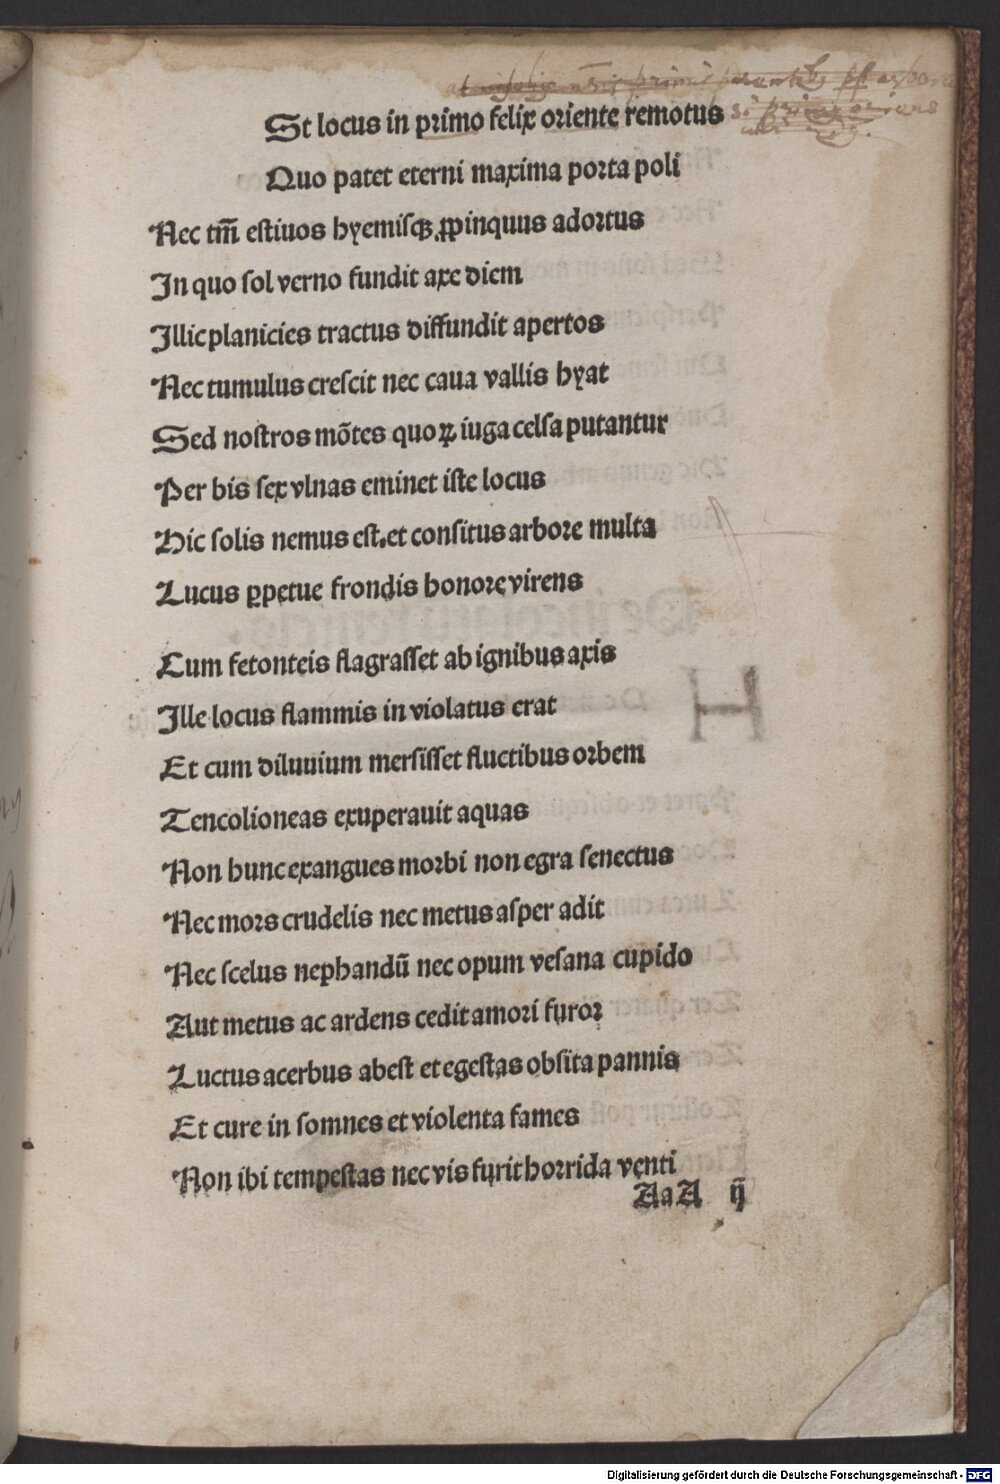 St locus in primo felix oriente remotus
Quo patet eterni maxima porta poli
Nec tm̄ estiuos hyemisqꝫ ꝓpinquus adortus
In quo sol verno fundit axe diem
Illic planicies tractus diffundit apertos
Nec tumulus crescit nec caua vallis hyat
Sed nostros mōtes quoꝝ iuga celsa putantur
Per bis sex vlnas eminet iste locus
Hic solis nemus est.et consitus arbore multa
Lucus ꝑpetue frondis honore virens
Cum fetonteis flagrasset ab ignibus axis
Ille locus flammis in violatus erat
Et cum diluuium mersisset fluctibus orbem
Tencolioneas exuperauit aquas
Non hunc exangues morbi non egra senectus
Nec mors crudelis nec metus asper adit
Nec scelus nephandū nec opum vesana cupido
Aut metus ac ardens cedit amori furor
Luctus acerbus abest et egestas obsita pannis
Et cure in somnes et violenta fames
Non ibi tempestas nec vis furit horrida venti
AaA ij
Digitalisierung gefördert durch die Deutsche Forschungsgemeinschaft - DFG